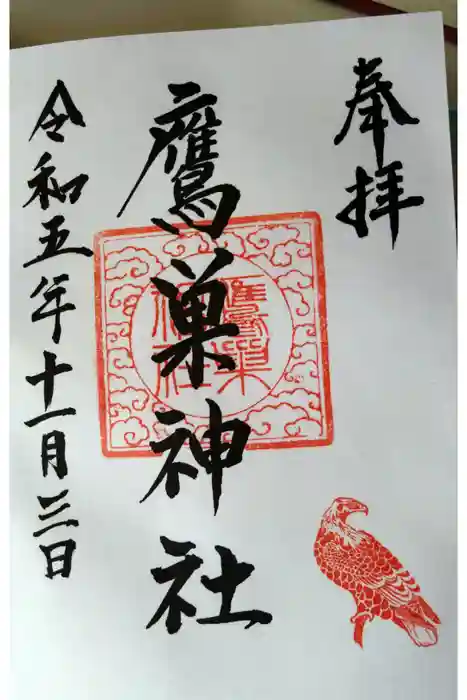 奉拝
鷹巣神社
鷹巣神社
令和五年十一月三日